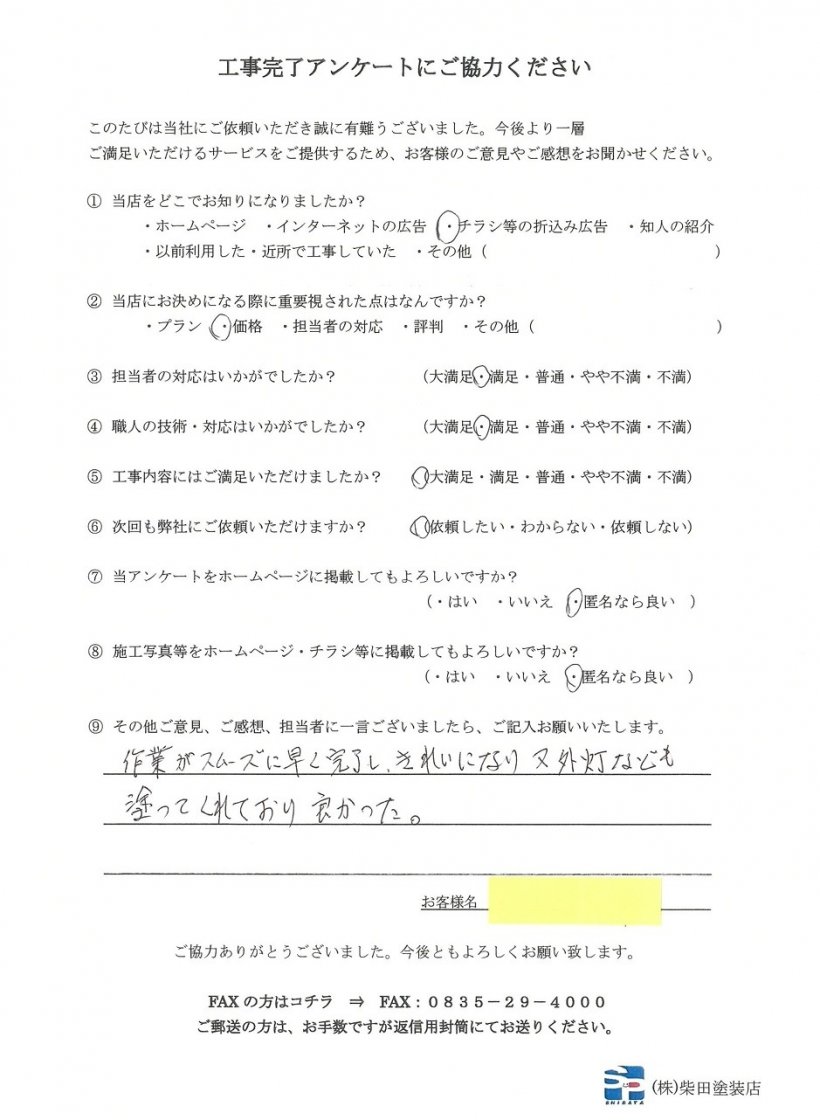 工事完了アンケートにご協力ください
このたびは当社にご依頼いただき誠に有難うございました。今後より一層
ご満足いただけるサービスをご提供するため、お客様のご意見やご感想をお聞かせください。
① 当店をどこでお知りになりましたか？
・ホームページ ・インターネットの広告 ・チラシ等の折込み広告 ・知人の紹介
・以前利用した・近所で工事していた ・その他（ ）
② 当店にお決めになる際に重要視された点はなんですか？
・プラン ・価格 ・担当者の対応 ・評判 ・その他（ ）
③ 担当者の対応はいかがでしたか？ （大満足・満足・普通・やや不満・不満）
④ 職人の技術・対応はいかがでしたか？ （大満足・満足・普通・やや不満・不満）
⑤ 工事内容にはご満足いただけましたか？ （大満足・満足・普通・やや不満・不満）
⑥ 次回も弊社にご依頼いただけますか？ （依頼したい・わからない・依頼しない）
⑦ 当アンケートをホームページに掲載してもよろしいですか？
（・はい ・いいえ ・匿名なら良い ）
⑧ 施工写真等をホームページ・チラシ等に掲載してもよろしいですか？
（・はい ・いいえ ・匿名なら良い ）
⑨ その他ご意見、ご感想、担当者に一言ございましたら、ご記入お願いいたします。
作業がスムーズに早く完了し、きれいになり 又外灯なども
塗ってくれており 良かった。
お客様名
ご協力ありがとうございました。今後ともよろしくお願い致します。
FAX の方はコチラ ⇒ FAX：０８３５－２９－４０００
ご郵送の方は、お手数ですが返信用封筒にてお送りください。
SHIBATA (株)柴田塗装店